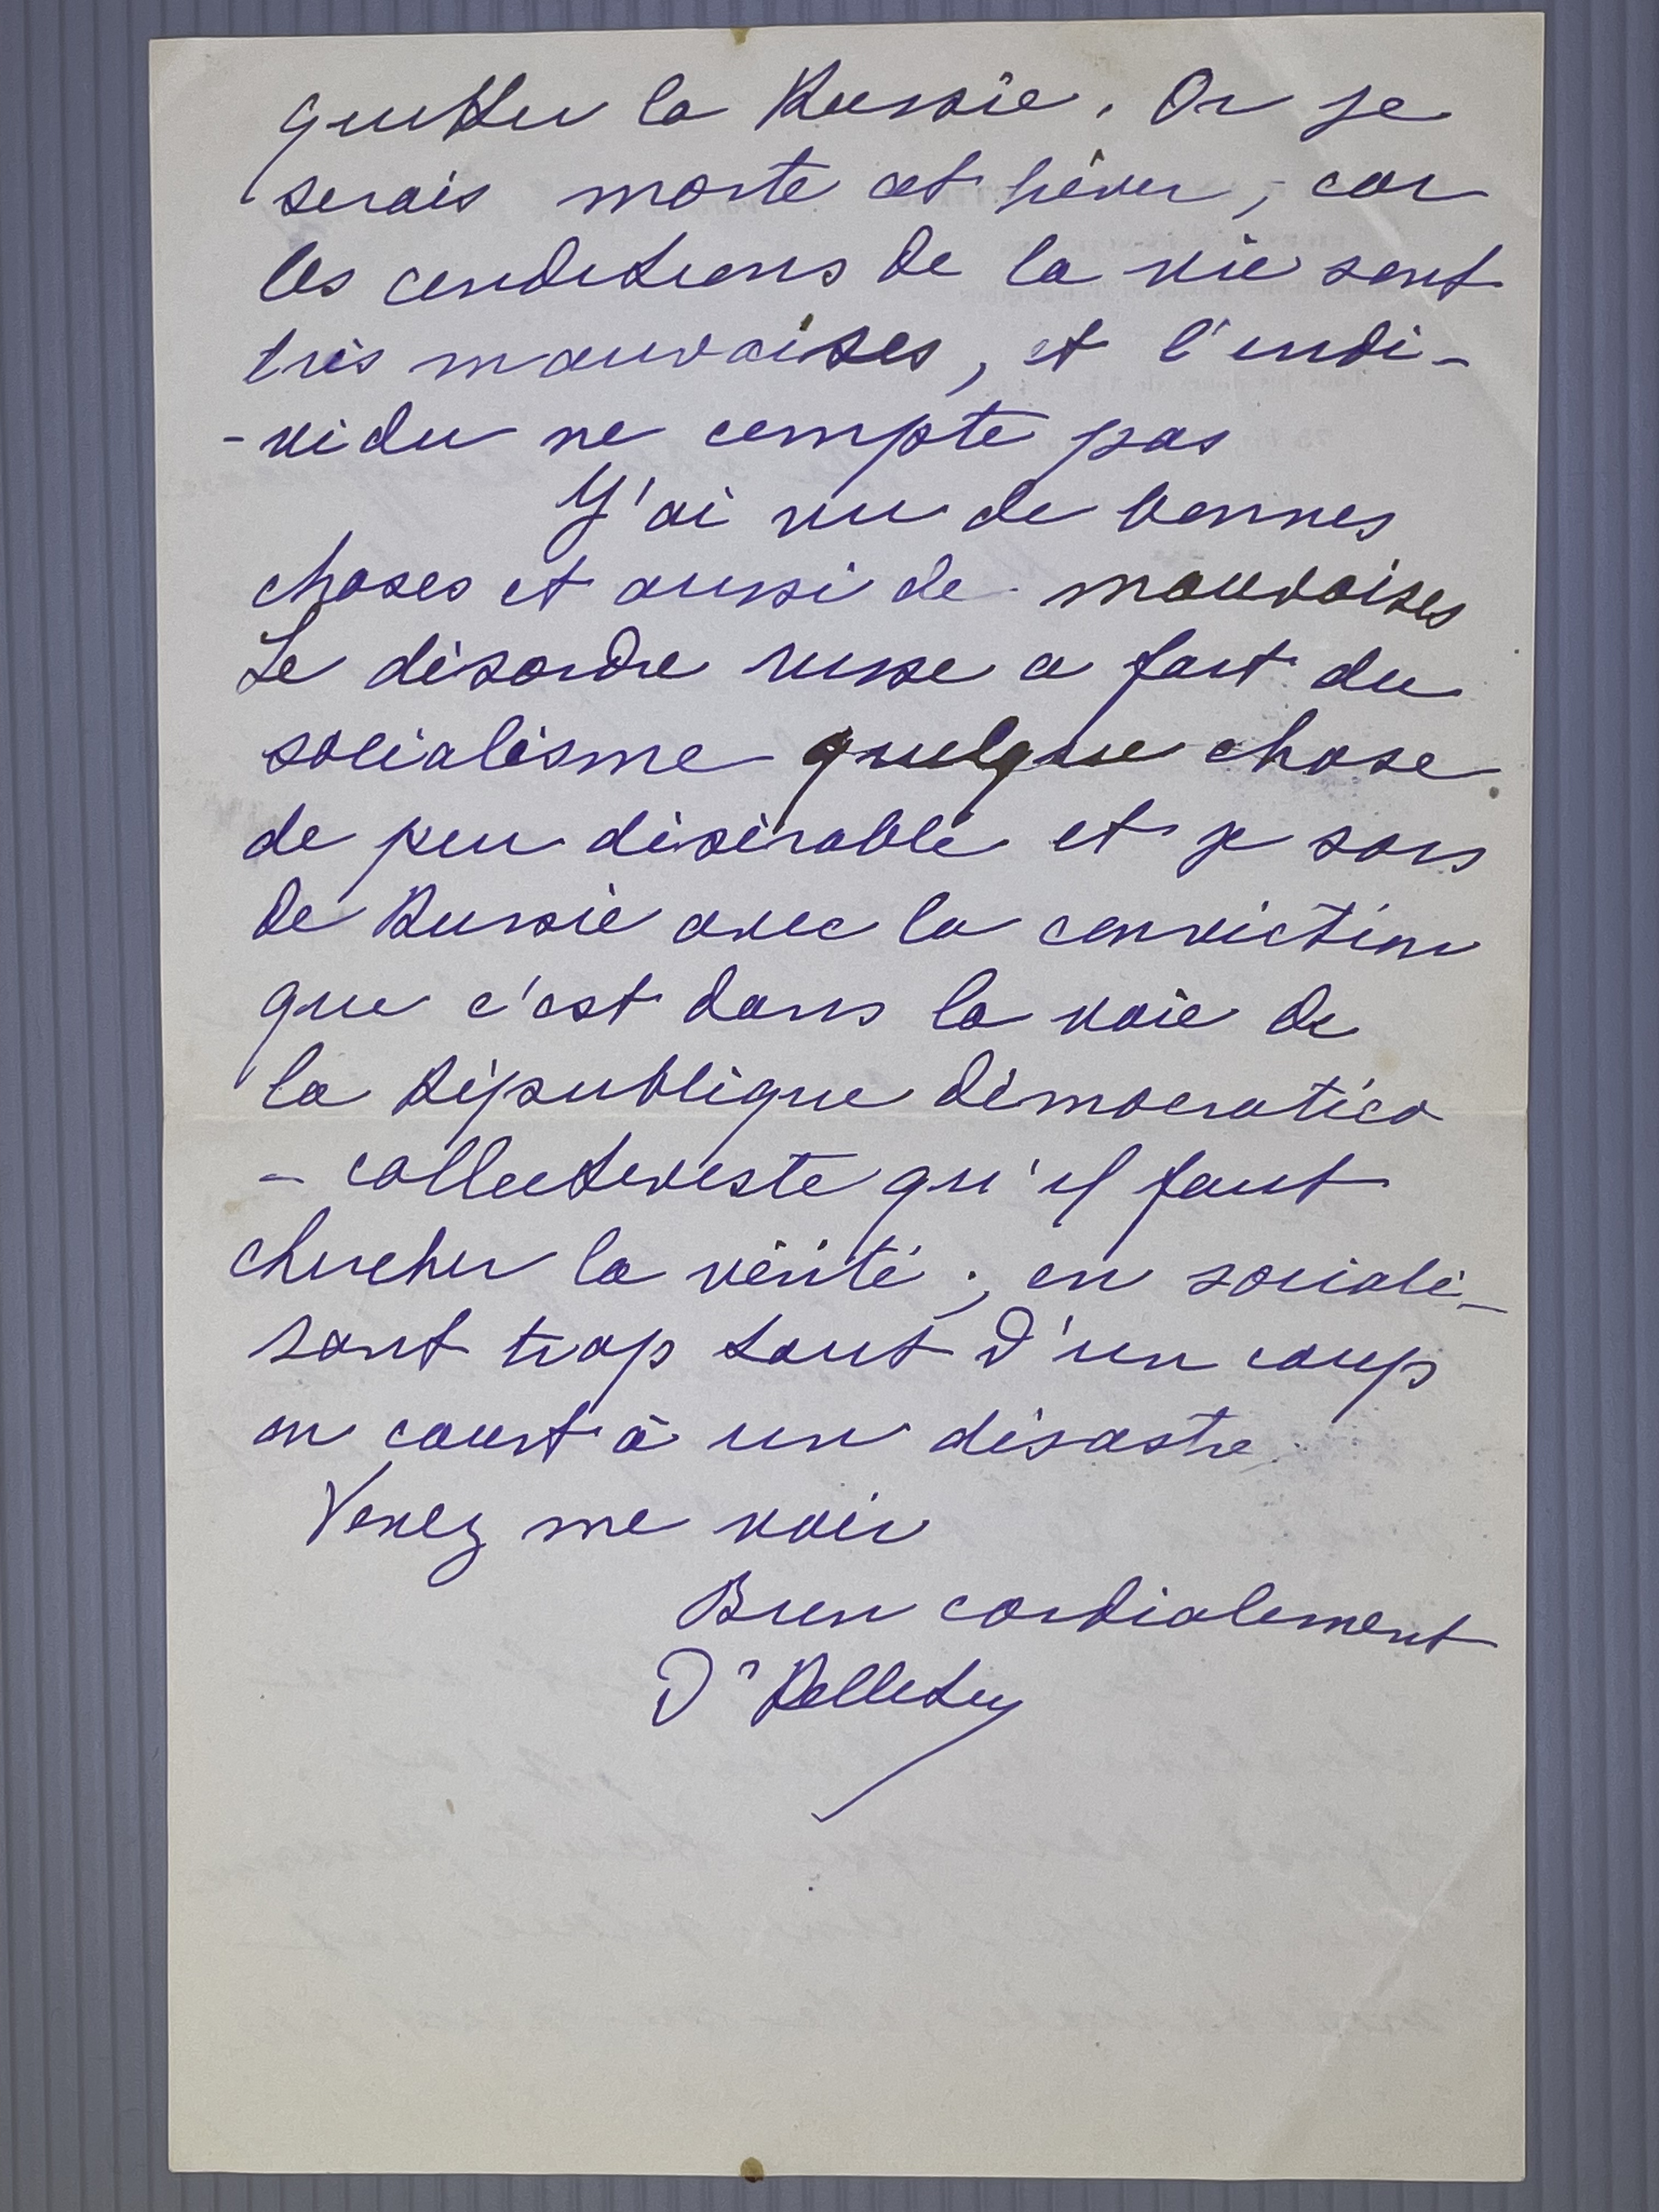 quitter la Russie. Or je
serais morte cet hiver, car
les conditions de la vie sont
très mauvaises, et l'indi-
-vidu ne compte pas
J'ai vu de bonnes
choses et aussi de mauvaises
Le désordre russe a fait du
socialisme quelque chose
de peu désirable et je sors
de Russie avec la conviction
que c'est dans la voie de
la République démocratico
- collectiviste qu'il faut
chercher la vérité ; en sociali-
sant trop tout d'un coup
on court à un désastre
Venez me voir
Bien cordialement
Dr Pelletier